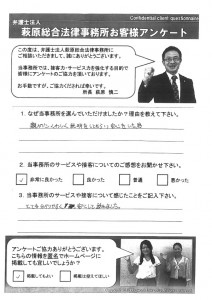 Confidential client questionnaire
弁護士法人
萩原総合法律事務所お客様アンケート
この度は、弁護士法人萩原総合法律事務所に
ご相談いただきまして、誠にありがとうございます。
当事務所では、接客力・サービス力を強化する目的で
皆様にアンケートのご協力を頂いております。
お手数ですが、ご協力くだされば幸いです。
所長 萩原 慎二
1. なぜ当事務所を選んでいただけましたか?理由を教えて下さい。
2. 当事務所のサービスや接客についてのご感想をお聞かせ下さい。
✓ 非常に良かった 良かった 普通 悪かった
3. 当事務所のサービスや接客について感じたことをご記入下さい。
アンケートご協力ありがとうございます。
こちらの情報を匿名でホームページに
掲載しても宜しいでしょうか?
✓ 掲載してもよい 掲載は控えてほしい